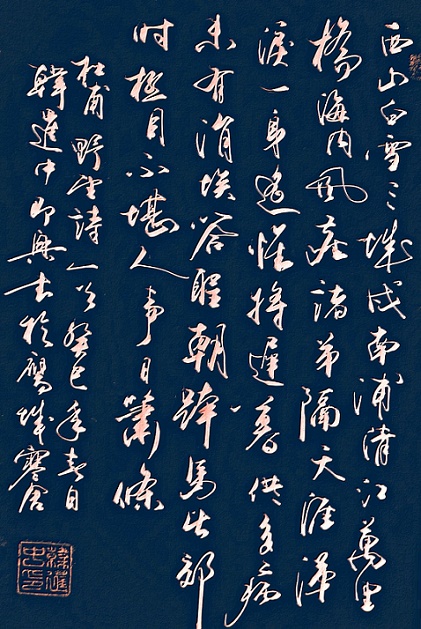 西山白雪三城戍南浦清江萬里
橋海内風塵諸弟隔天涯涕
淚一身遙惟將遲暮供多病
未有涓埃答聖朝跨馬出郊
时極目不堪人事日蕭條
杜甫野望詩一首癸巳年春日
韓中即興书於鷹城寒舍